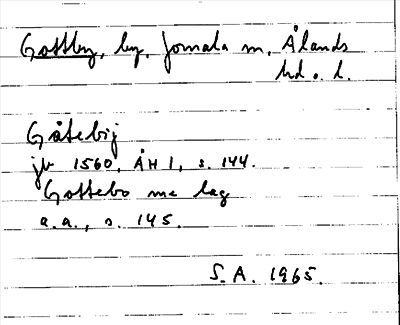 Gottby, by, Jomala sn, Ålands
hd o. l.
Gåtebij
jb 1560, ÅH 1, s. 144.
Gottebo sne lag
a.a., s. 145.
S.A. 1965.